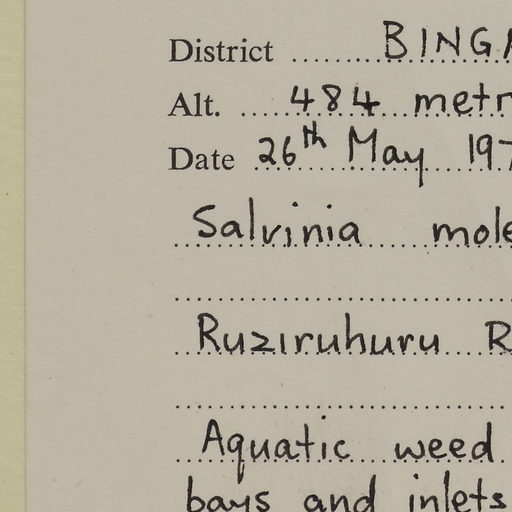 District ........ BINGA
Alt. .... 484 metr
Date 26th May 197
Salvinia mole
Ruziruhuru R
Aquatic weed
bays and inlets